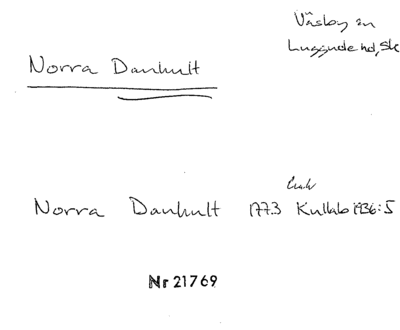 Väsby sn
Luggude hd, Sk
Norra Danhult
Norra Danhult 1773 Kullab 1936:5
Nr 21769